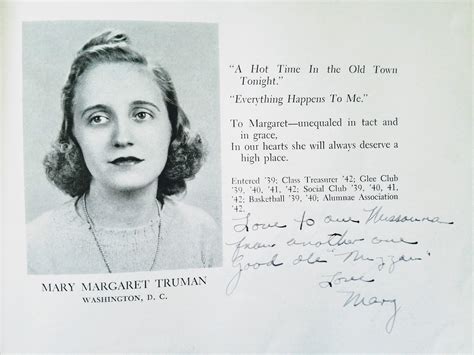 "A Hot Time In the Old Town
Tonight."
"Everything Happens To Me."
To Margaret—unequaled in tact and
in grace,
In our hearts she will always deserve a
high place.
Entered '39; Class Treasurer '42; Glee Club
'39, '40, '41, '42; Social Club '39, '40, 41,
'42; Basketball '39, '40; Alumnae Association
'42.
Love to one Missourian
from another one
Good ole "Mizzou"
Love
Mary
MARY MARGARET TRUMAN
WASHINGTON, D. C.